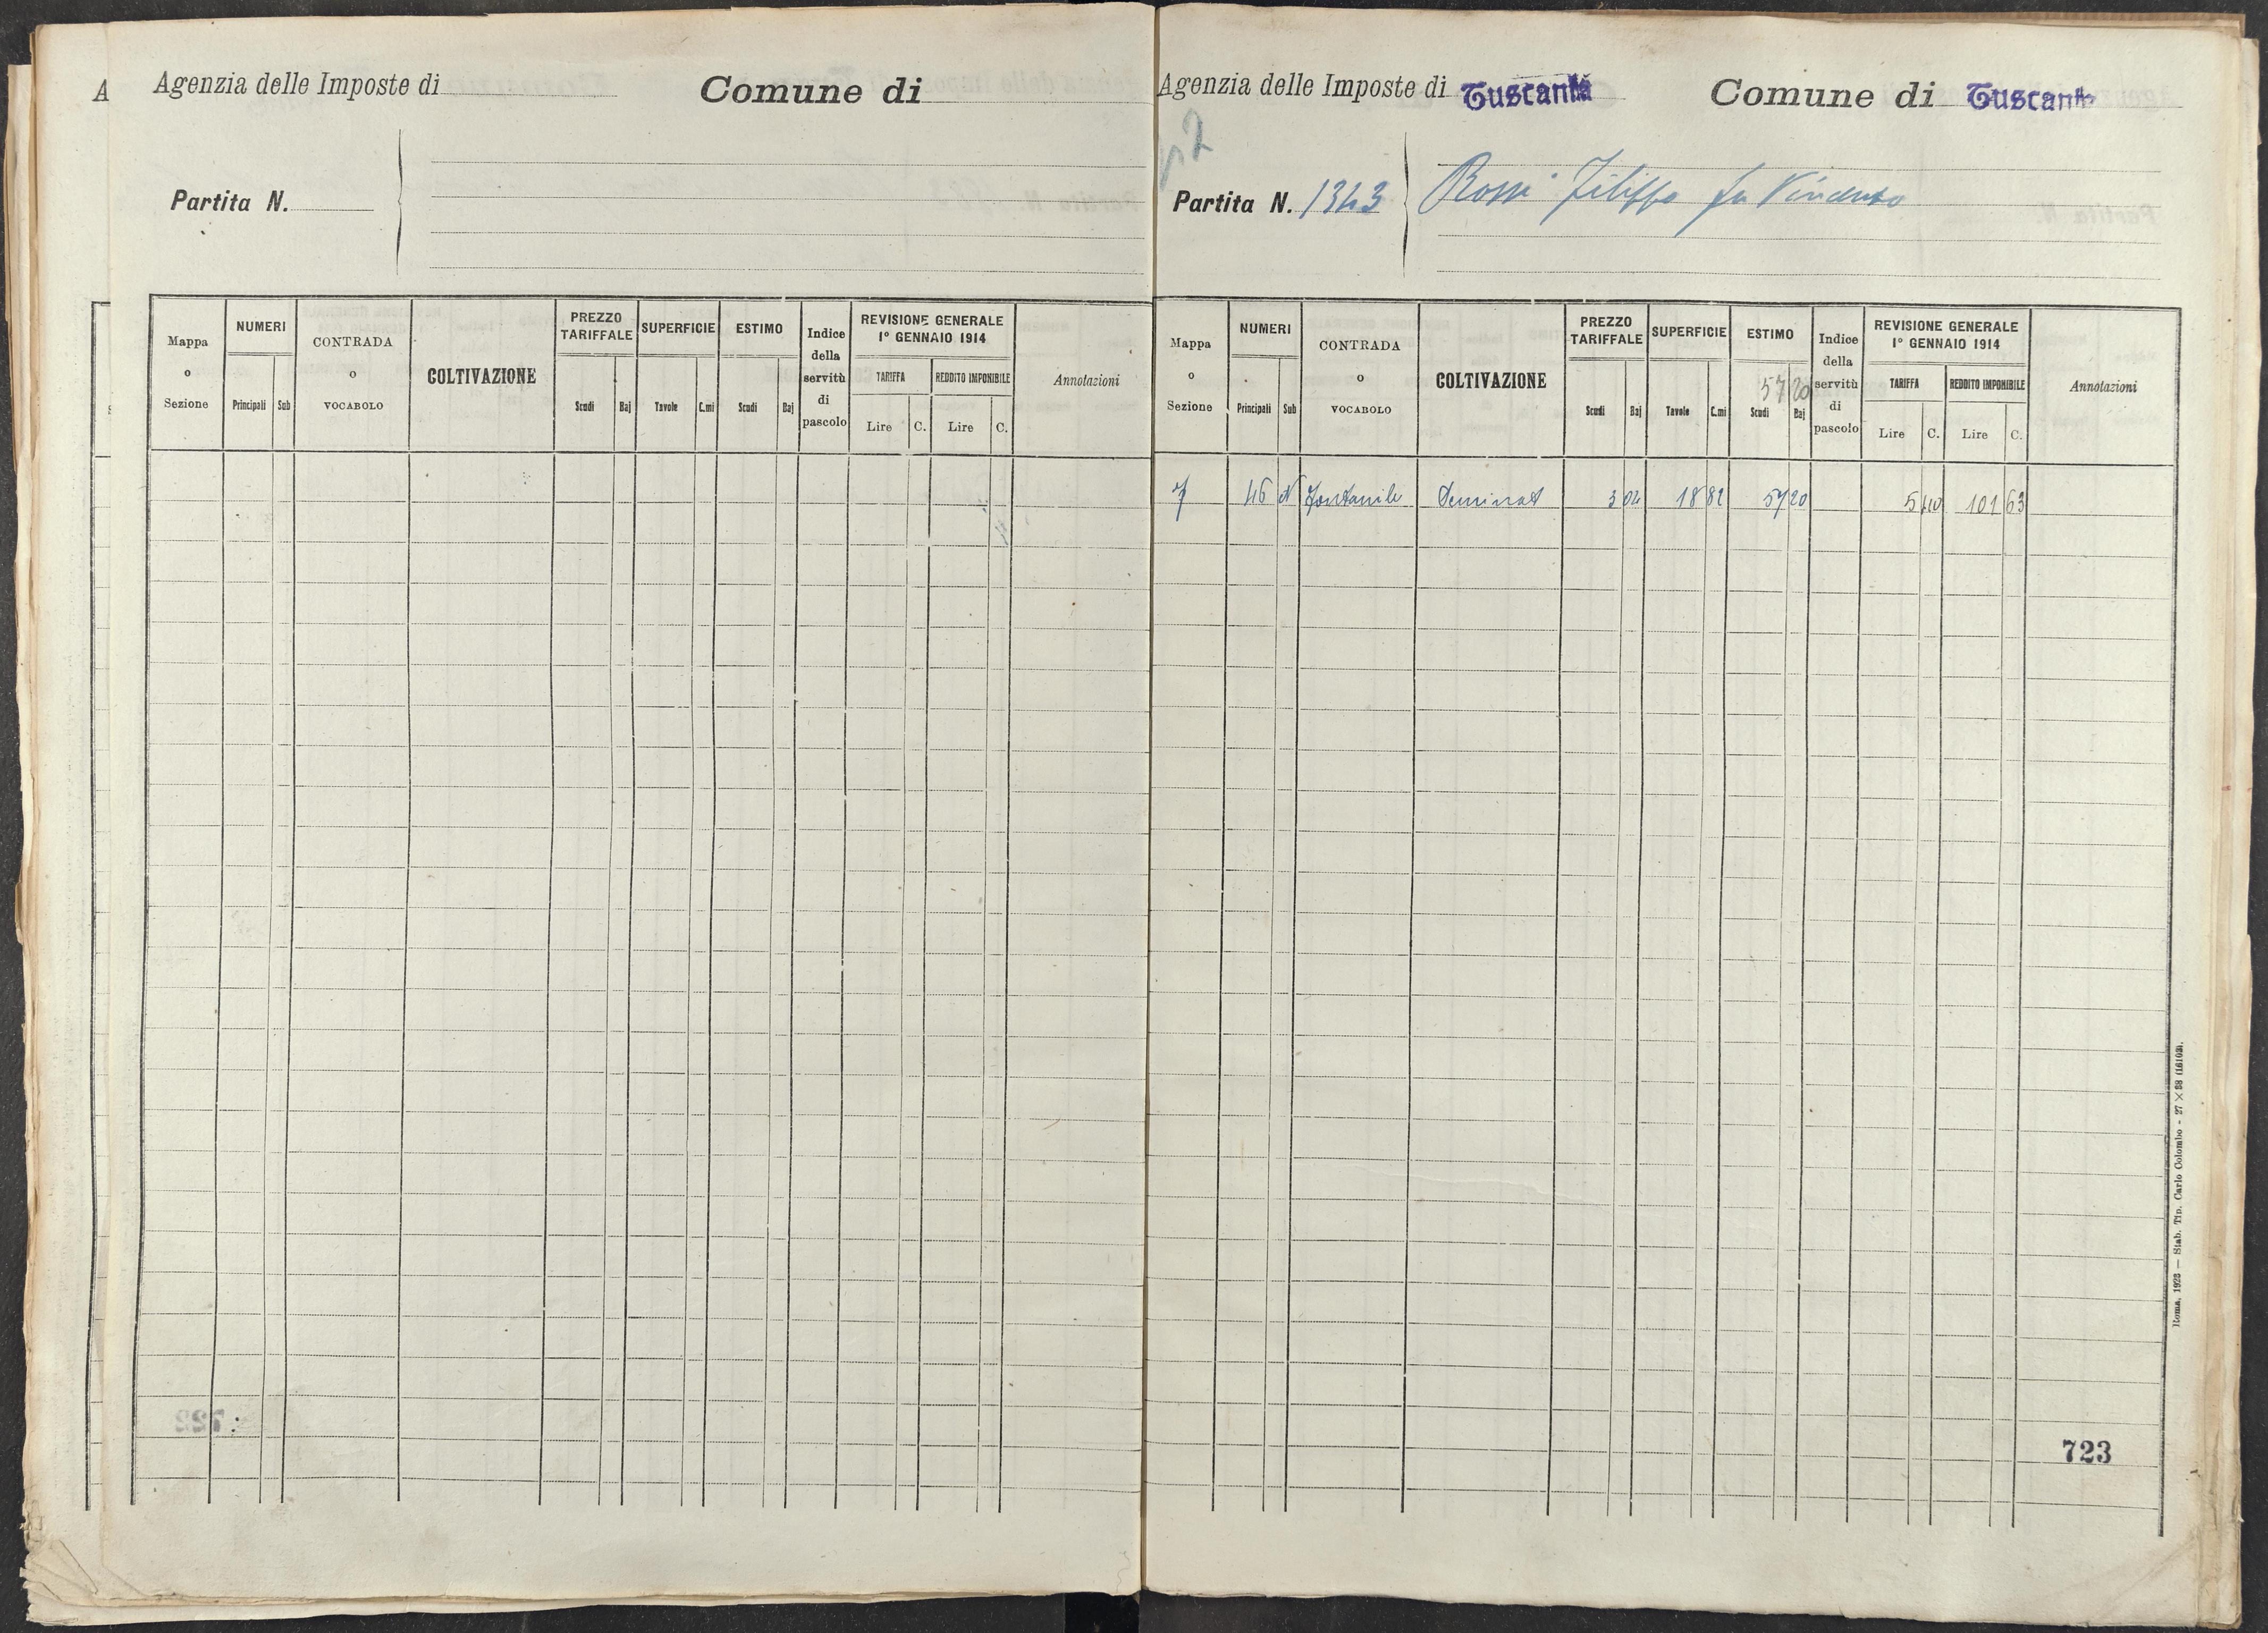 A
Agenzia delle Imposte di
Comune di
Partita N.
Mappa o Sezione
NUMERI
Principali Sub
CONTRADA o VOCABOLO
COLTIVAZIONE
PREZZO TARIFFALE
Scudi Baj
SUPERFICIE
Tavole C.mi
ESTIMO
Scudi Baj
Indice della servitù di pascolo
REVISIONE GENERALE
1° GENNAIO 1914
TARIFFA
Lire C.
REDDITO IMPONIBILE
Lire C.
Annotazioni
Agenzia delle Imposte di Tuscania
Comune di Tuscania
Partita N. 1343
Rossi Filippo fu Vincenzo
Mappa o Sezione
NUMERI
Principali Sub
CONTRADA o VOCABOLO
COLTIVAZIONE
PREZZO TARIFFALE
Scudi Baj
SUPERFICIE
Tavole C.mi
ESTIMO
57 20
Scudi Baj
Indice della servitù di pascolo
REVISIONE GENERALE
1° GENNAIO 1914
TARIFFA
Lire C.
REDDITO IMPONIBILE
Lire C.
Annotazioni
7 46 Fontanile Seminat 3 04 18 82 57 20 5 40 101 63
723
Roma, 1923 — Stab. Tip. Carlo Colombo - 27 × 38